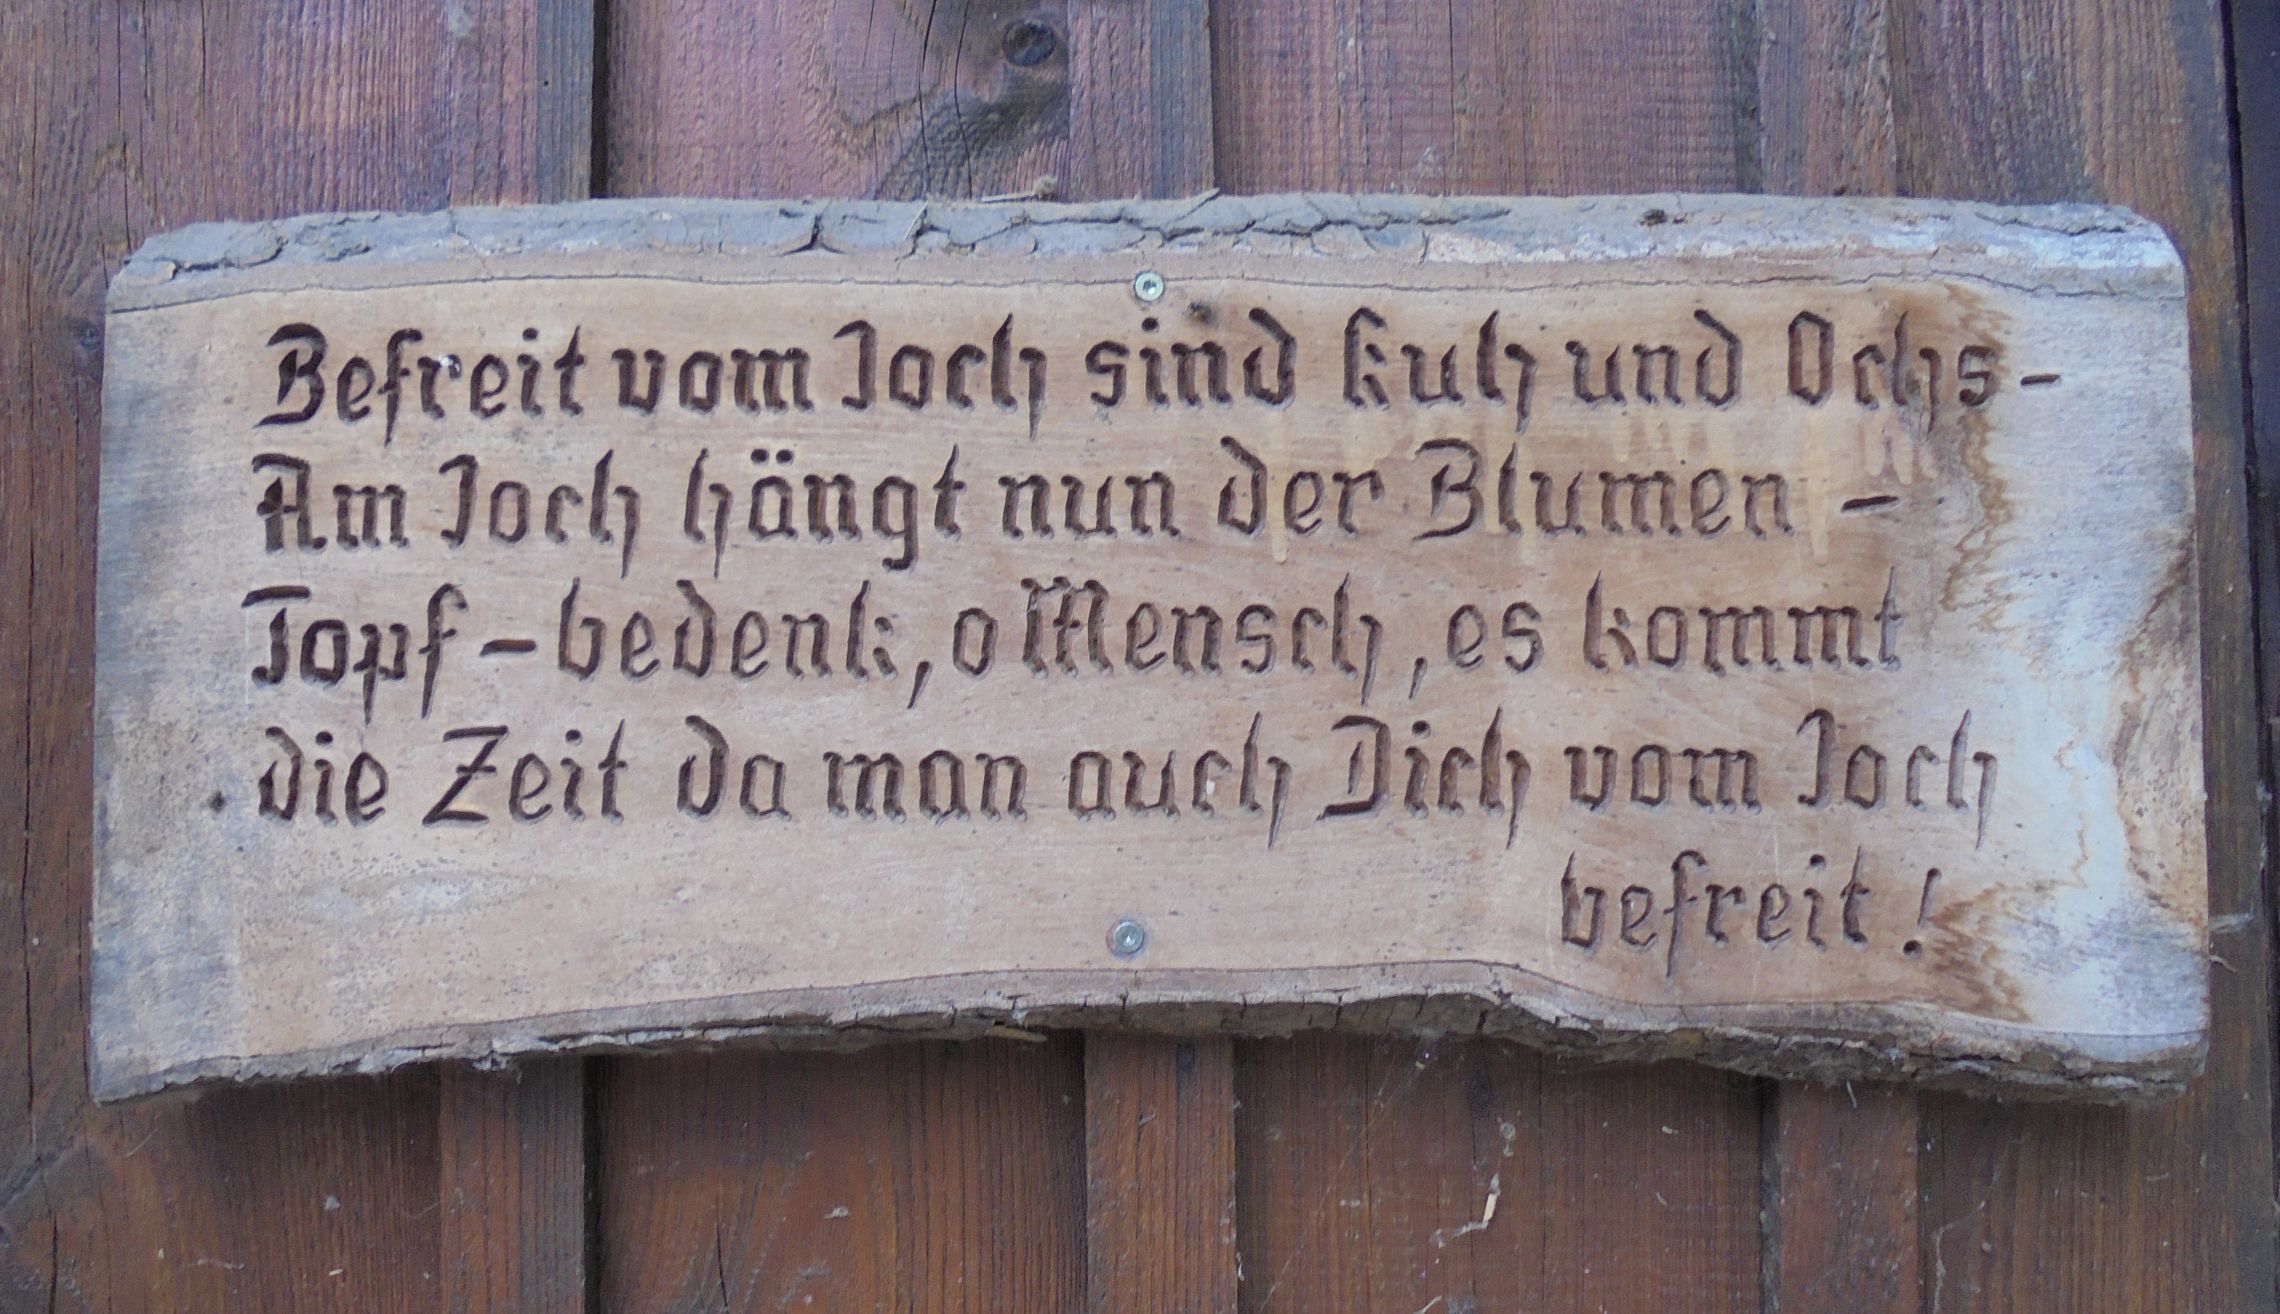 Befreit vom Joch sind Kuh und Ochs-
Am Joch hängt nun der Blumen -
Topf - bedenk, o Mensch, es kommt
die Zeit da man auch Dich vom Joch
befreit !